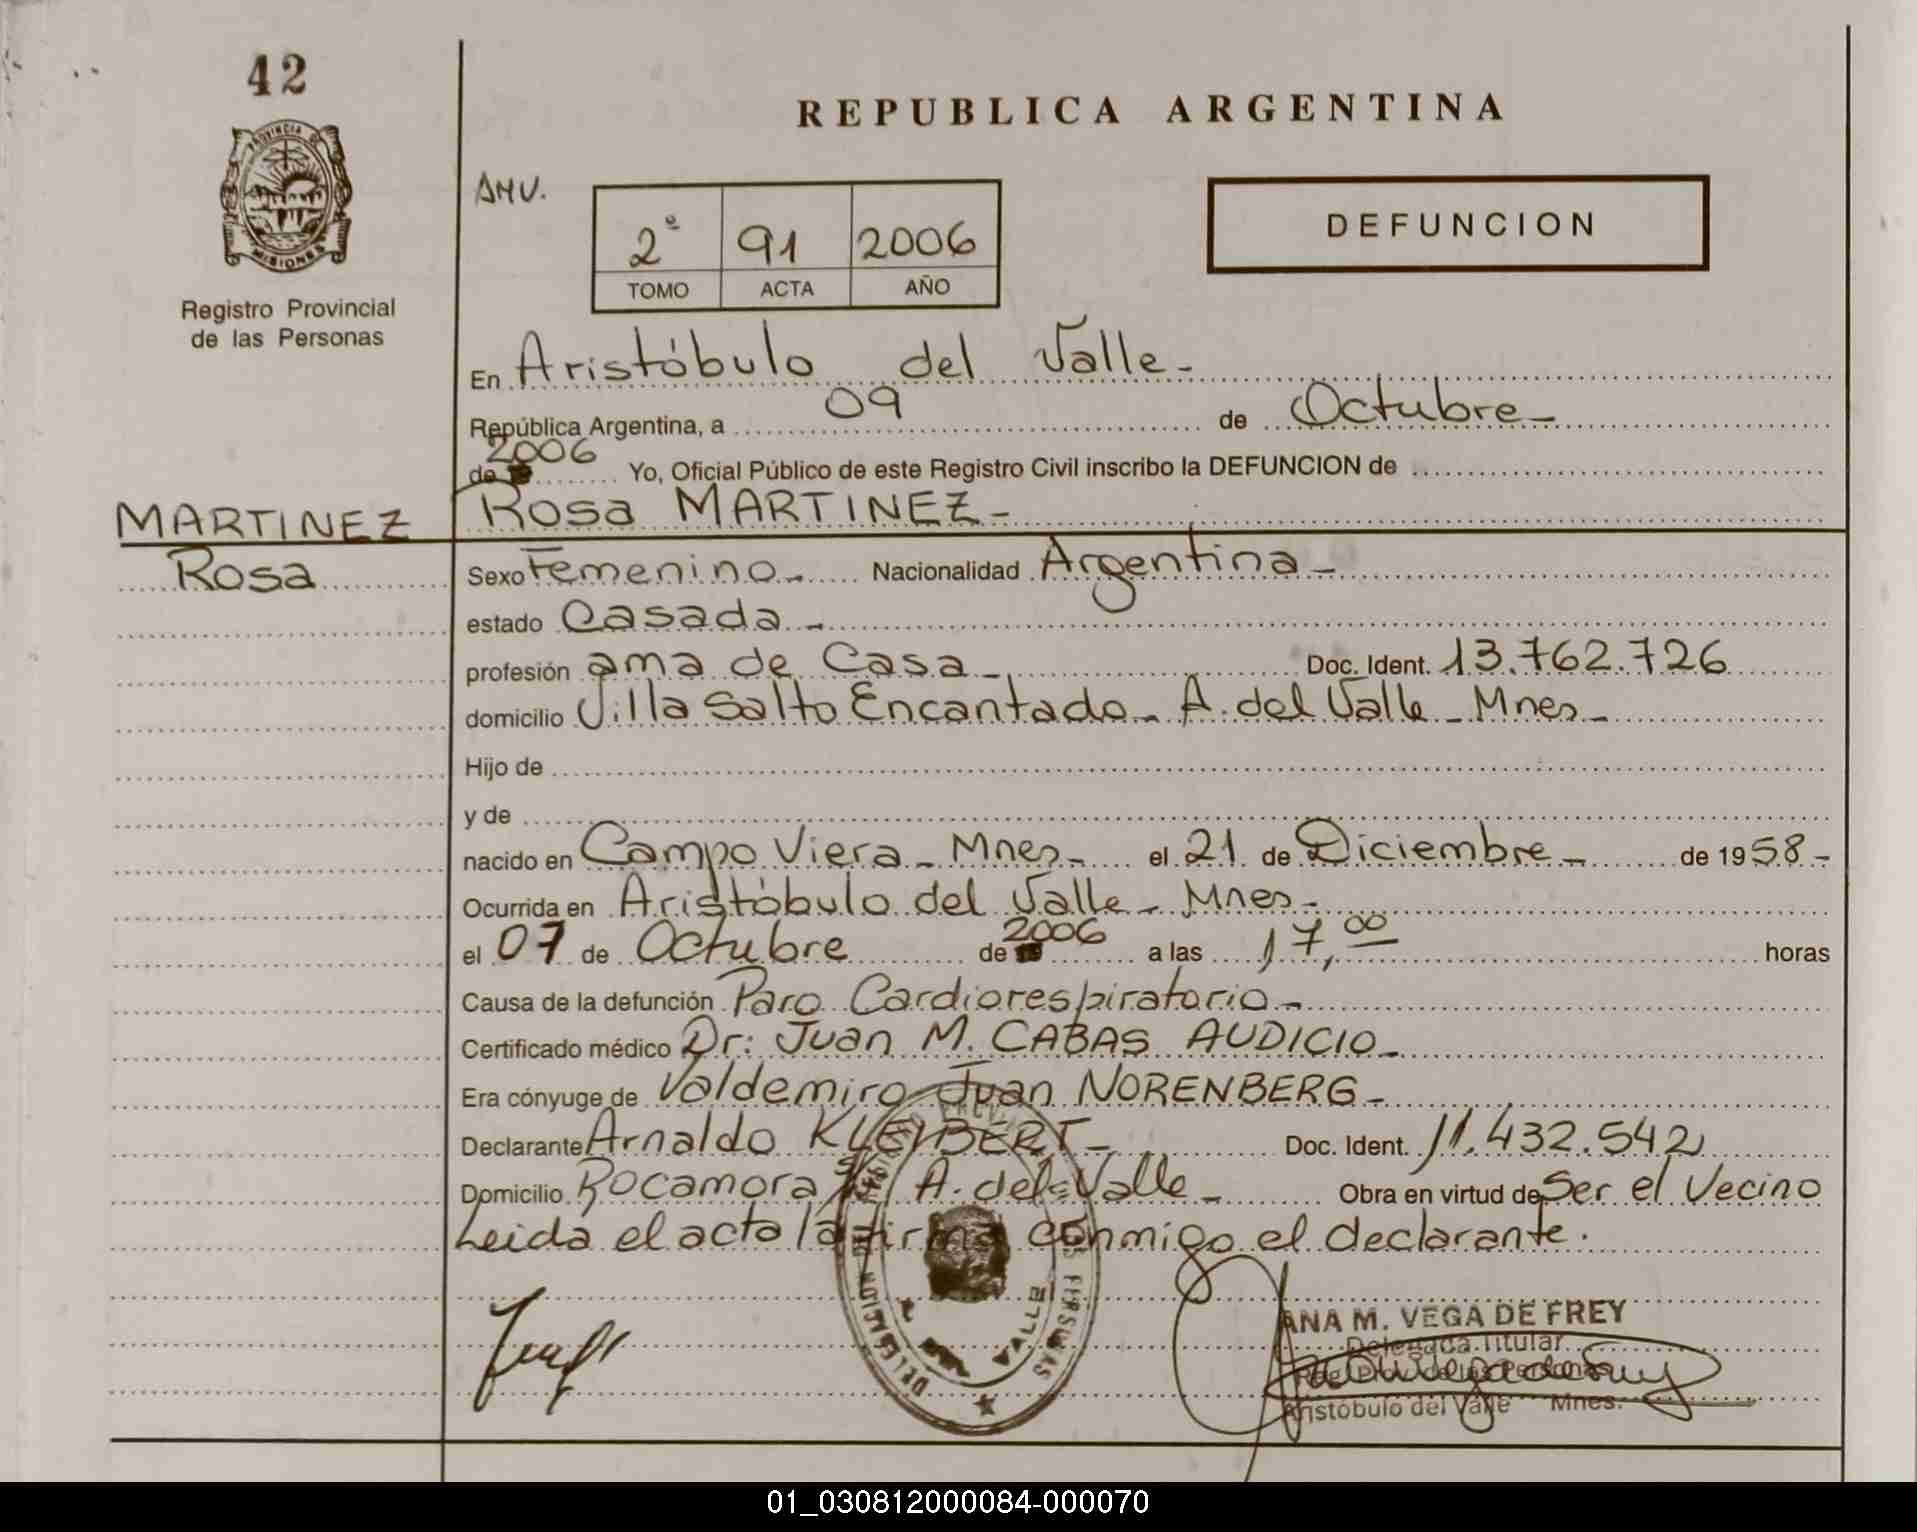 42
REPUBLICA ARGENTINA
PROVINCIA DE
MISIONES
Registro Provincial
de las Personas
AMV.
2º 91 2006
TOMO ACTA AÑO
DEFUNCION
En Aristóbulo del Valle-
República Argentina, a 09 de Octubre-
de 2006 Yo, Oficial Público de este Registro Civil inscribo la DEFUNCION de
MARTINEZ Rosa MARTINEZ-
Rosa Sexo Femenino- Nacionalidad Argentina-
estado Casada-
profesión ama de Casa- Doc. Ident. 13.762.726
domicilio Villa Salto Encantado- A. del Valle- Mnes-
Hijo de
y de
nacido en Campo Viera- Mnes- el 21 de Diciembre- de 1958-
Ocurrida en Aristóbulo del Valle- Mnes-
el 07 de Octubre de 2006 a las 17,00 horas
Causa de la defunción Paro Cardiorespiratorio-
Certificado médico Dr: Juan M. CABAS AUDICIO-
Era cónyuge de Valdemiro Juan NORENBERG-
Declarante Arnaldo Doc. Ident. 11.432.542
Domicilio Rocamora A. del Valle- Obra en virtud de Ser el Vecino
Leida el acta la firma conmigo el declarante.
DELEGACION DEL
PERSONAS
VALLE
ANA M. VEGA DE FREY
Delegada Titular
Aristóbulo del Valle Mnes.
01_030812000084-000070